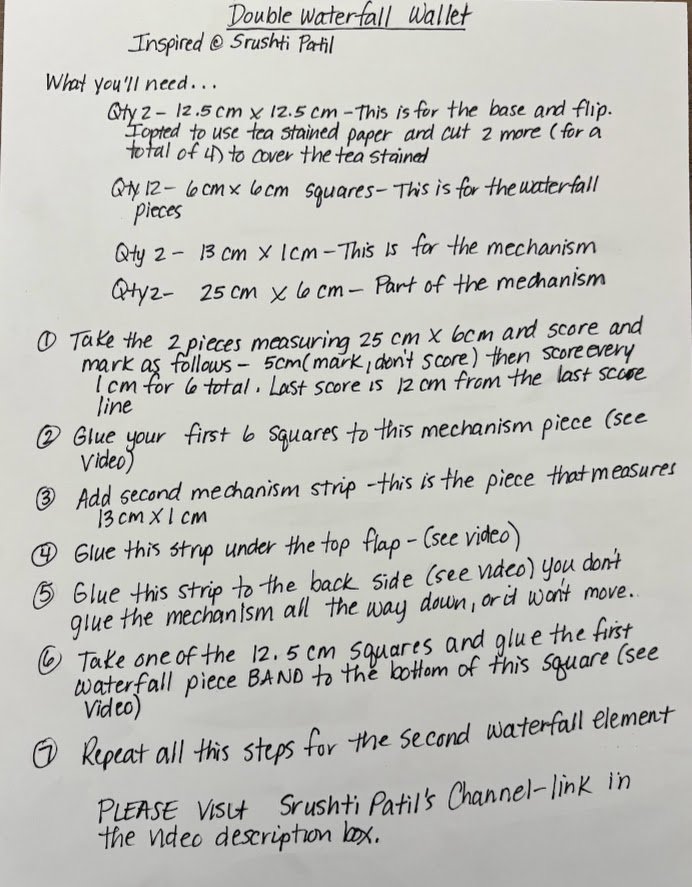 Double Waterfall Wallet
Inspired @ Srushti Patil
What you'll need...
Qty 2 - 12.5 cm x 12.5 cm - This is for the base and flip.
I opted to use tea stained paper and cut 2 more (for a
total of 4) to cover the tea stained
Qty 12 - 6 cm x 6 cm squares - This is for the waterfall
pieces
Qty 2 - 13 cm x 1 cm - This is for the mechanism
Qty 2 - 25 cm x 6 cm - Part of the mechanism
① Take the 2 pieces measuring 25 cm x 6cm and score and
mark as follows - 5cm (mark, don't score) then score every
1 cm for 6 total. Last score is 12 cm from the last score
line
② Glue your first 6 squares to this mechanism piece (see
video)
③ Add second mechanism strip - this is the piece that measures
13 cm x 1 cm
④ Glue this strip under the top flap - (see video)
⑤ Glue this strip to the back side (see video) you don't
glue the mechanism all the way down, or it won't move.
⑥ Take one of the 12.5 cm squares and glue the first
waterfall piece BAND to the bottom of this square (see
video)
⑦ Repeat all this steps for the second waterfall element
PLEASE VISIt Srushti Patil's Channel - link in
the video description box.